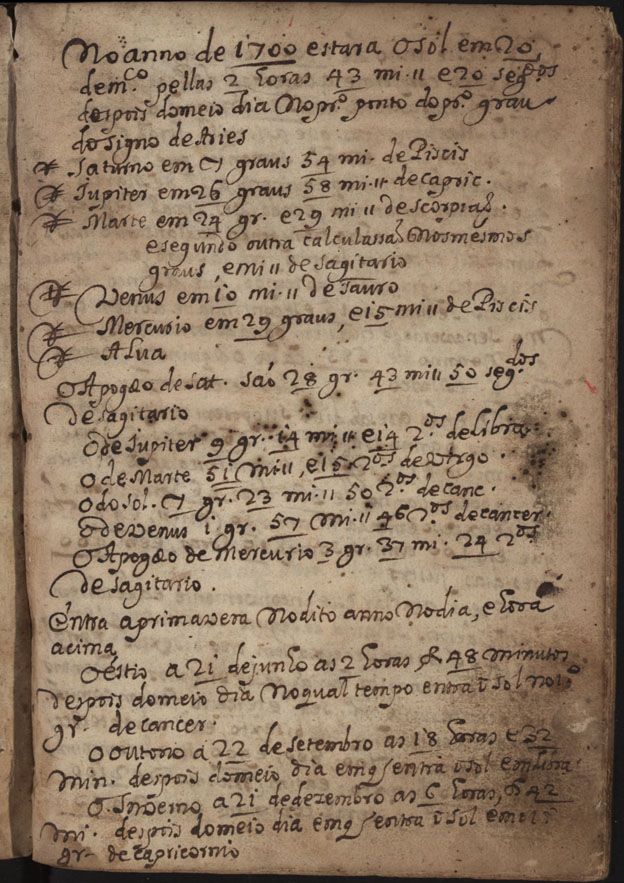 No anno de 1700 estara O sol em 20,
de m.ço pellas 2 horas 43 mi.ıı e 20 seg.dos
despois do meio dia No pr.o ponto do pr.o grau
do signo de Aries
Saturno em 7 graus 54 mi. de Piscis
Iupiter em 26 graus 58 mi.ıı de capric.
Marte em 24 gr. e 29 mi ıı de scorpiaõ.
e segundo outra calculassaõ Nos mesmos
graus, e mi ıı de Sagitario
Venus em 10 mi.ıı de Tauro
Mercurio em 29 graus, e 15 mi ıı de Piscis
A lua
O Apogæo de Sat. saõ 28 gr. 43 mi ıı 50 seg.dos
de Sagitario
O de Iupiter 9 gr. 14 mi ıı e 14 2.dos de libra
O de Marte 51 mi.ıı, e 15 2.dos de virgo.
O do sol. 7 gr. 23 mi ıı 50 2.dos de canc.
O de Venus i gr. 57 mi ıı 46 2.dos de cancer.
O Apogæo de Mercurio 3 gr. 37 mi. 24 2.dos
de Sagitario.
Entra a primavera No dito anno No dia, e hora
acima
O estio a 21 de junho as 2 horas & 48 minutos
despois do meio dia No qual tempo entra o sol no
gr. de cancer.
O outono a 22 de setembro as 18 horas e 32
min. despois do meio dia em q entra o sol em libra
O Inverno a 21 de dezembro as 6 horas, & 42
mi. despois do meio dia em q entra o sol em
gr. de capricornio